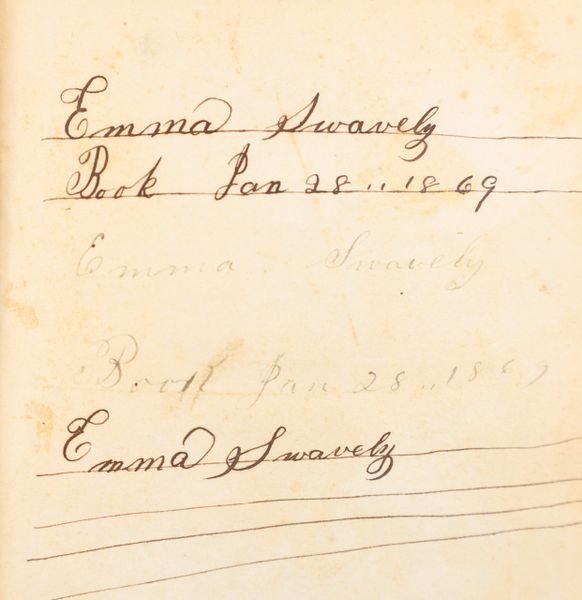 Emma Swavely
Book Jan 28,, 1869
Emma Swavely
Book Jan 28,, 1869
Emma Swavely